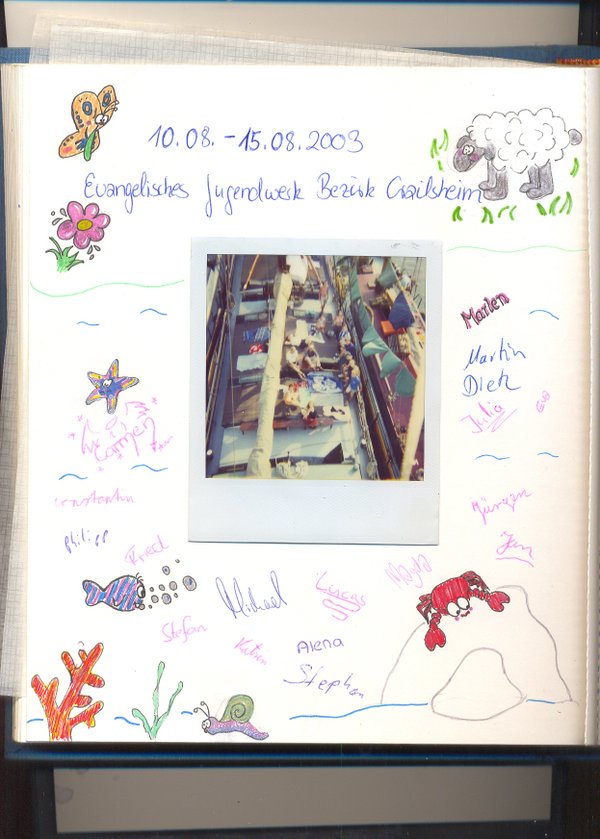 10.08. - 15.08.2003
Evangelisches Jugendwerk Bezirk Crailsheim
Marlen
Martin
Dietz
Julia
Eva
Carmen
Constantin
Jürgen
Philipp
Fred
Jan
Michael
Lucas
Magda
Stefan
Katrin
Alena
Stephan